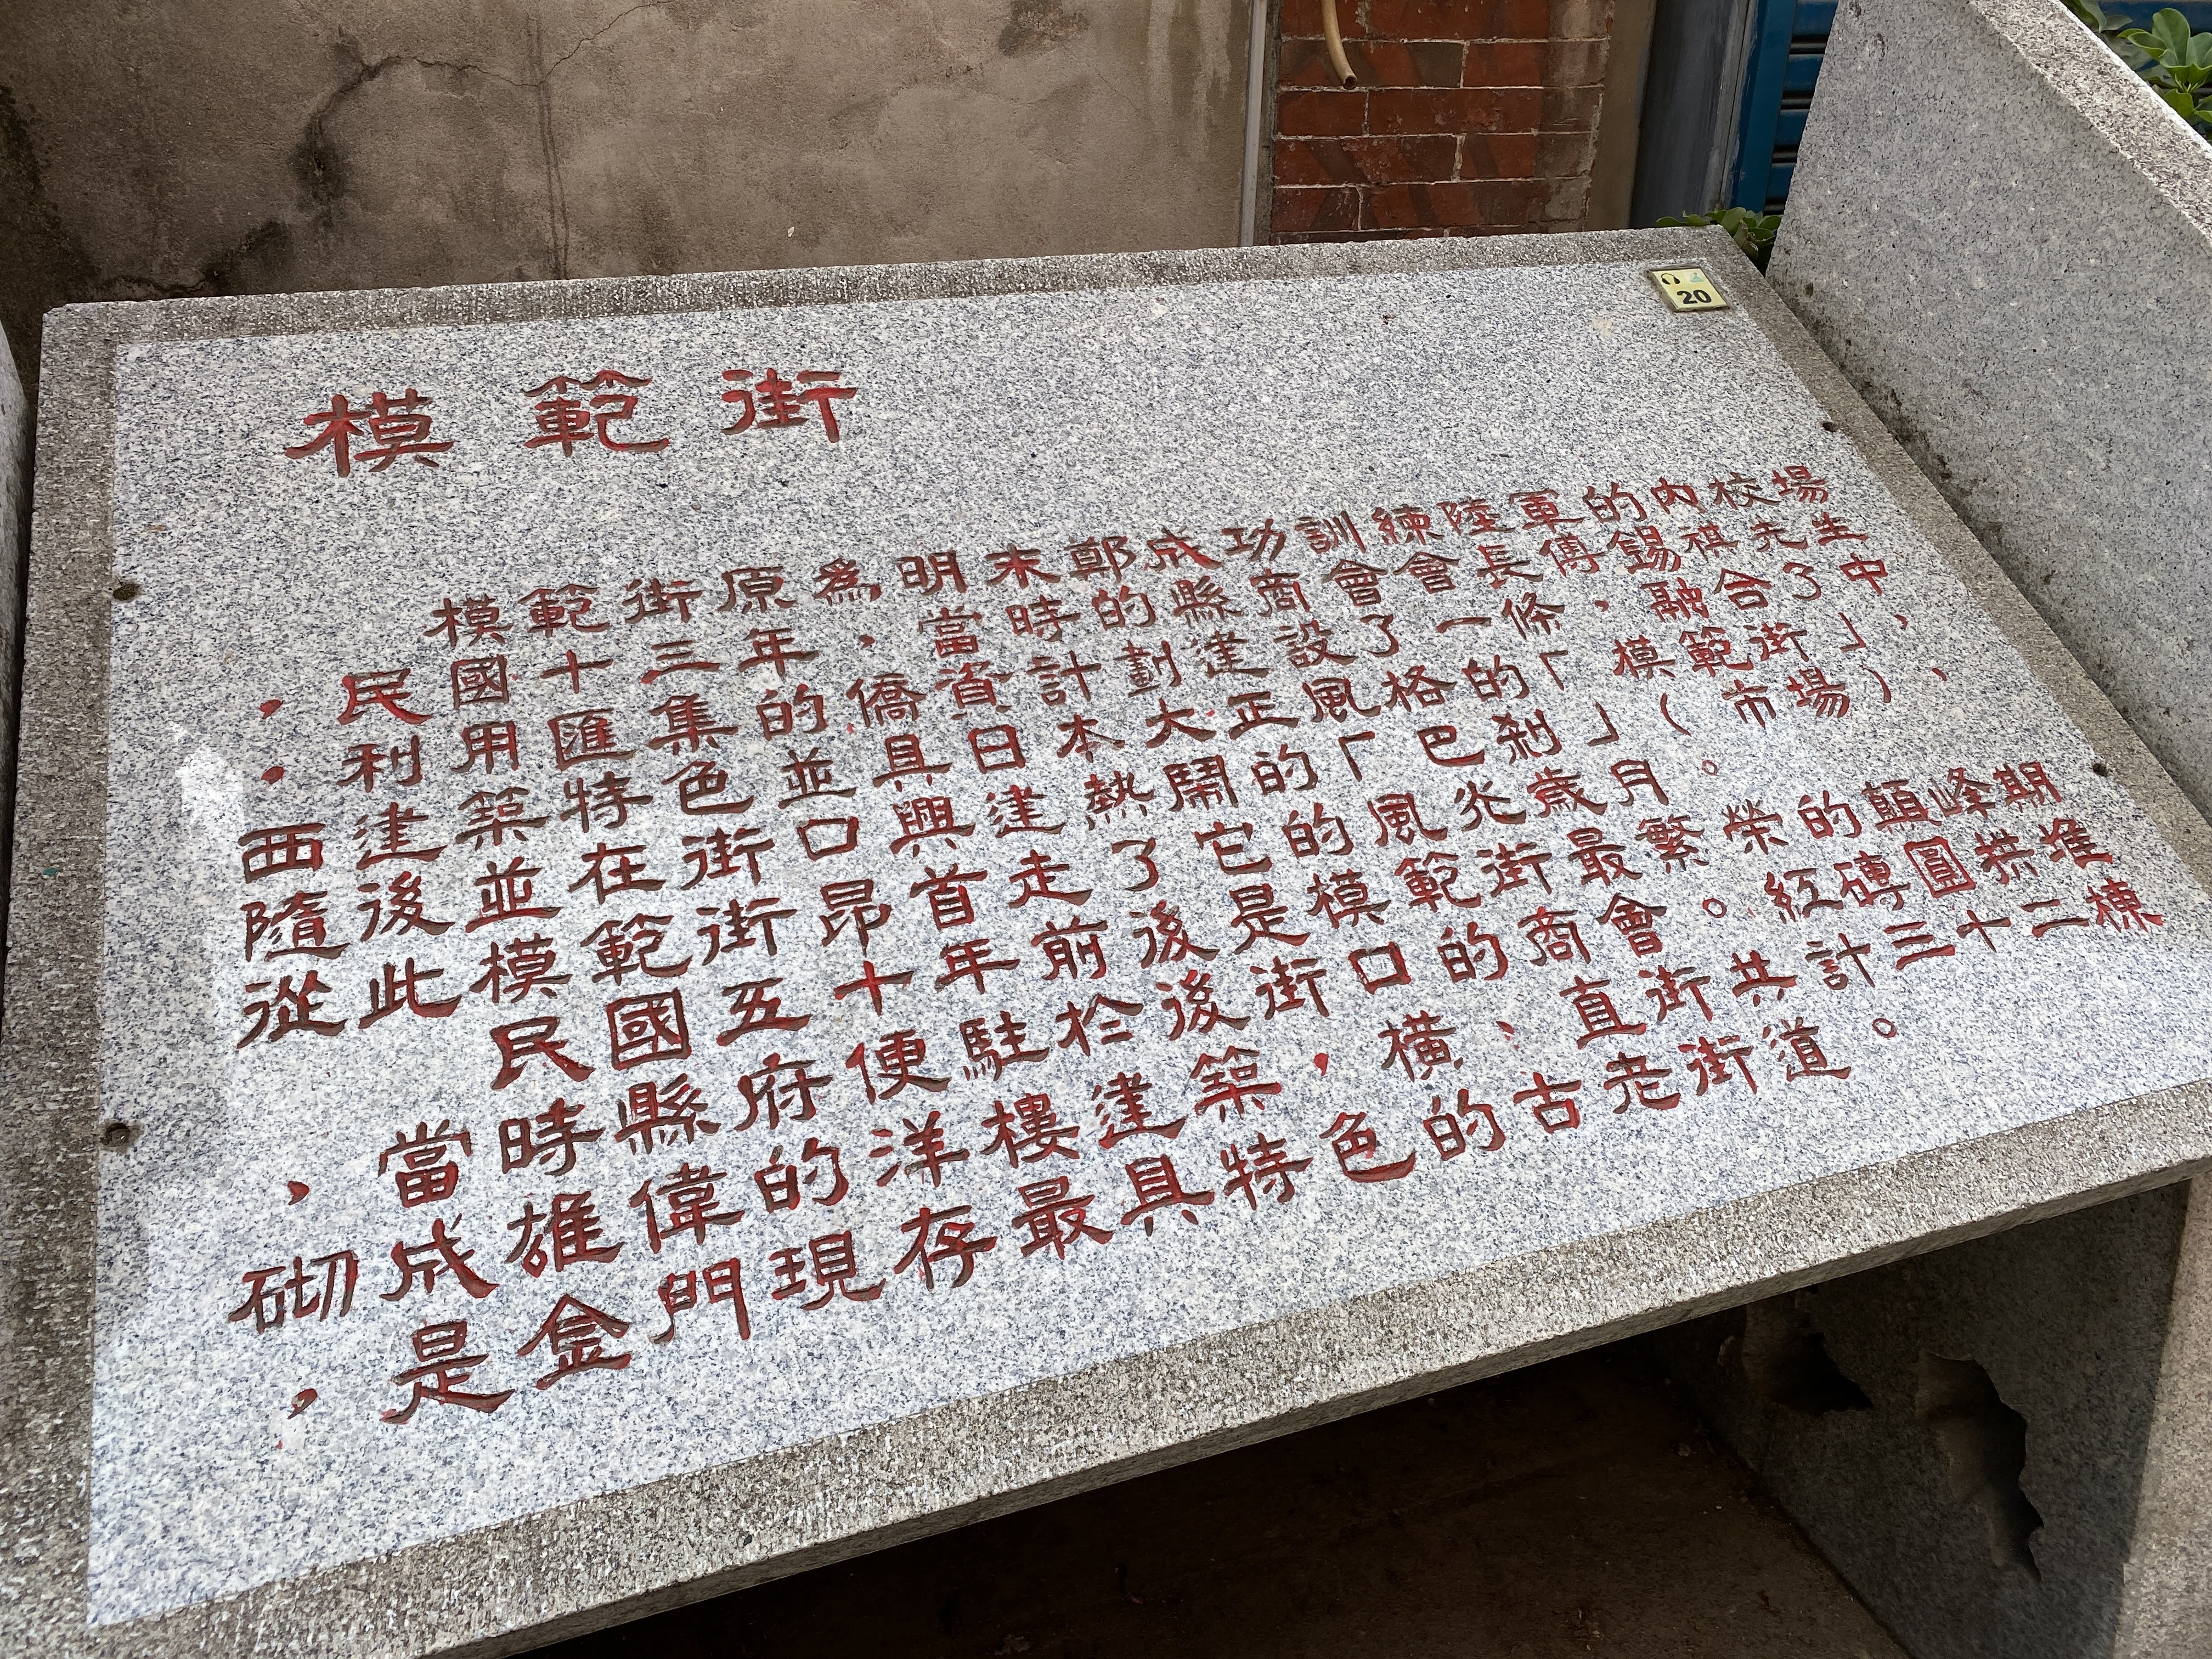 20
模範街
模範街原為明末鄭成功訓練陸軍的內校場
，民國十三年，當時的縣商會會長傅錫祺先生
，利用匯集的僑資計劃建設了一條，融合了中
西建築特色並具日本大正風格的「模範街」，
隨後並在街口興建熱鬧的「巴剎」（市場），
從此模範街昂首走了它的風光歲月。
民國五十年前後是模範街最繁榮的顛峰期
，當時縣府便駐於後街口的商會。紅磚圓拱堆
砌成雄偉的洋樓建築，橫、直街共計三十二棟
，是金門現存最具特色的古老街道。